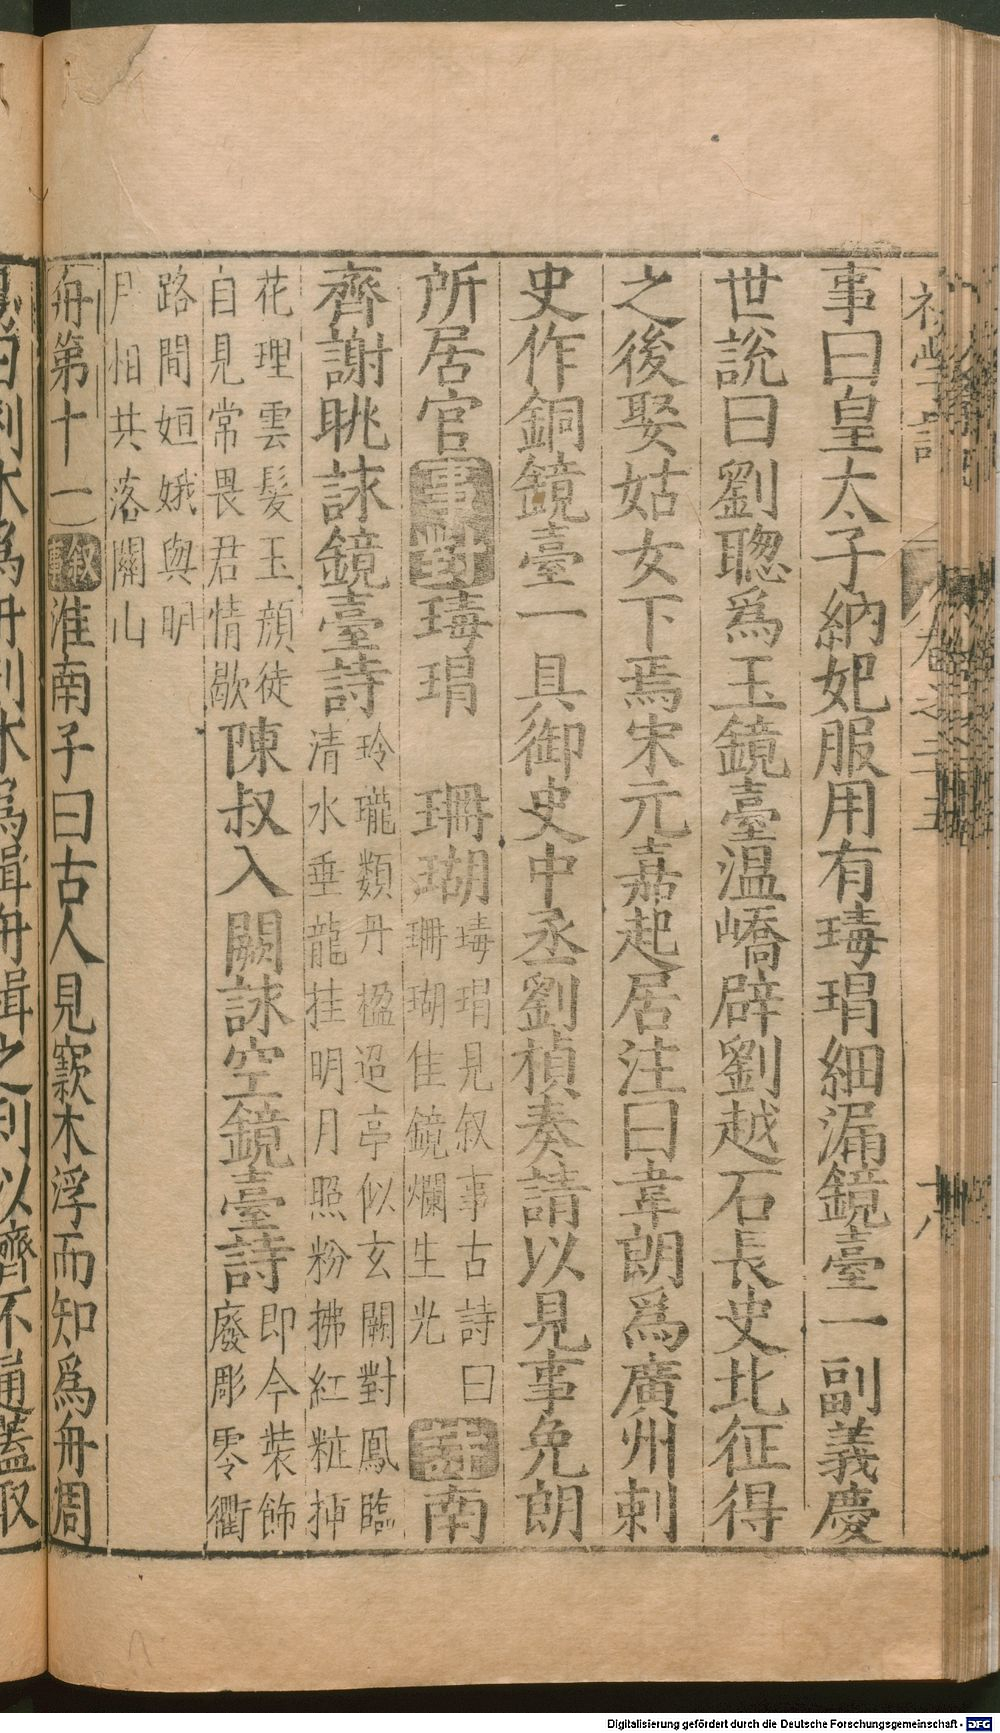 初學記 卷之二十五 十八
事曰皇太子納妃服用有瑇瑁細漏鏡臺一副義慶
世說曰劉聦爲玉鏡臺溫嶠辟劉越石長史北征得
之後娶姑女下焉宋元嘉起居注曰韋朗爲廣州刺
史作銅鏡臺一具御史中丞劉楨奏請以見事免朗
所居官事對瑇瑁 珊瑚
瑇瑁見叙事古詩曰
珊瑚佳鏡爛生光
詩南
齊謝眺詠鏡臺詩
玲瓏類丹楹迢亭似玄闕對鳳臨
清水垂龍挂明月照粉拂紅粧挿
花理雲髮玉顔徒
自見常畏君情歇
陳叔入闕詠空鏡臺詩
即今裝飾
廢彫零衢
路間姮娥與明
月相共落關山
舟第十一
叙事
淮南子曰古人見窾木浮而知爲舟周
刳木爲舟剡木爲楫舟楫之利以濟不通蓋取
Digitalisierung gefördert durch die Deutsche Forschungsgemeinschaft - DFG